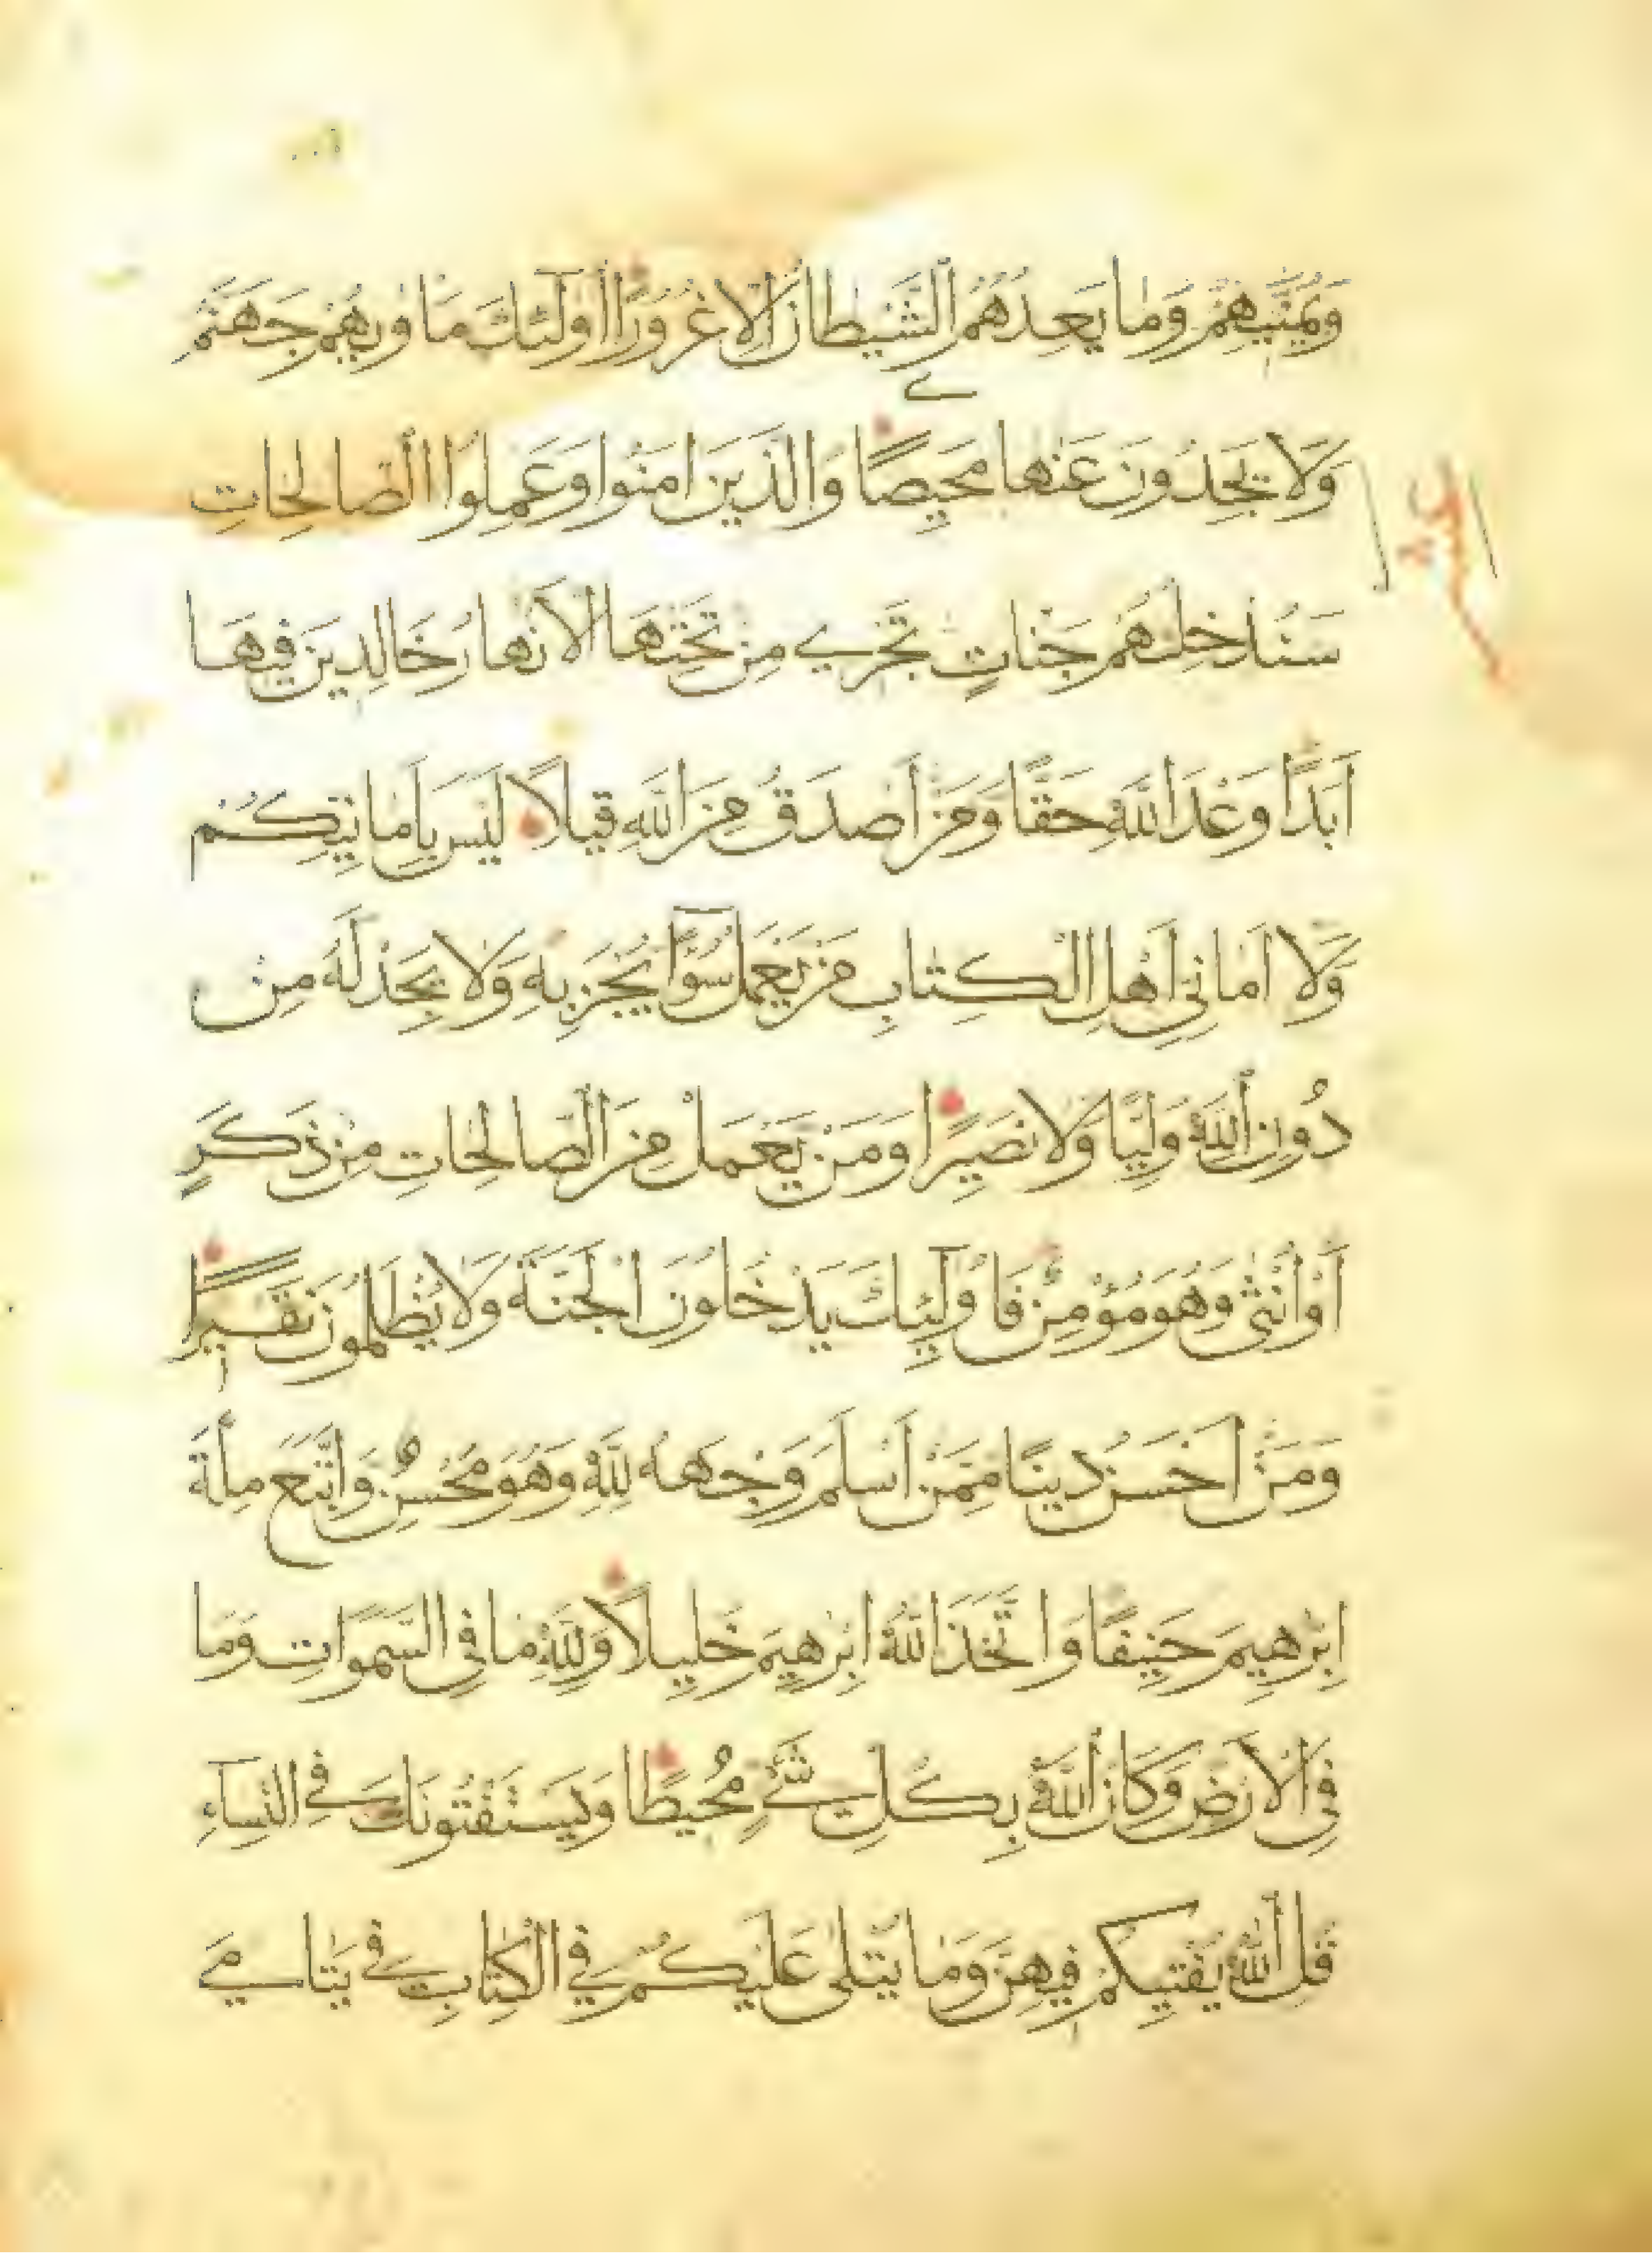 وَيُمَنِّيهِمْ وَمَا يَعِدُهُمُ الشَّيْطَانُ إِلَّا غُرُورًا أُولَٰٓئِكَ مَأْوٰىهُمْ جَهَنَّمُ
وَلَا يَجِدُونَ عَنْهَا مَحِيصًا وَالَّذِينَ اٰمَنُوا وَعَمِلُوا الصَّالِحَاتِ
سَنُدْخِلُهُمْ جَنَّاتٍ تَجْرِي مِنْ تَحْتِهَا الْاَنْهَارُ خَالِدِينَ فِيهَا
اَبَدًا وَعْدَ اللّٰهِ حَقًّا وَمَنْ اَصْدَقُ مِنَ اللّٰهِ قِيلًا لَيْسَ بِاَمَانِيِّكُمْ
وَلَا اَمَانِيِّ اَهْلِ الْكِتَابِ مَنْ يَعْمَلْ سُوٓءًا يُجْزَ بِهِ وَلَا يَجِدْ لَهُ مِنْ
دُونِ اللّٰهِ وَلِيًّا وَلَا نَصِيرًا وَمَنْ يَعْمَلْ مِنَ الصَّالِحَاتِ مِنْ ذَكَرٍ
اَوْ اُنْثٰى وَهُوَ مُؤْمِنٌ فَاُولٰٓئِكَ يَدْخُلُونَ الْجَنَّةَ وَلَا يُظْلَمُونَ نَقِيرًا
وَمَنْ اَحْسَنُ دِينًا مِمَّنْ اَسْلَمَ وَجْهَهُ لِلّٰهِ وَهُوَ مُحْسِنٌ وَاتَّبَعَ مِلَّةَ
اِبْرٰهِيمَ حَنِيفًا وَاتَّخَذَ اللّٰهُ اِبْرٰهِيمَ خَلِيلًا وَلِلّٰهِ مَا فِي السَّمٰوَاتِ وَمَا
فِي الْاَرْضِ وَكَانَ اللّٰهُ بِكُلِّ شَيْءٍ مُحِيطًا وَيَسْتَفْتُونَكَ فِي النِّسَآءِ
قُلِ اللّٰهُ يُفْتِيكُمْ فِيهِنَّ وَمَا يُتْلٰى عَلَيْكُمْ فِي الْكِتَابِ فِي يَتَامَى